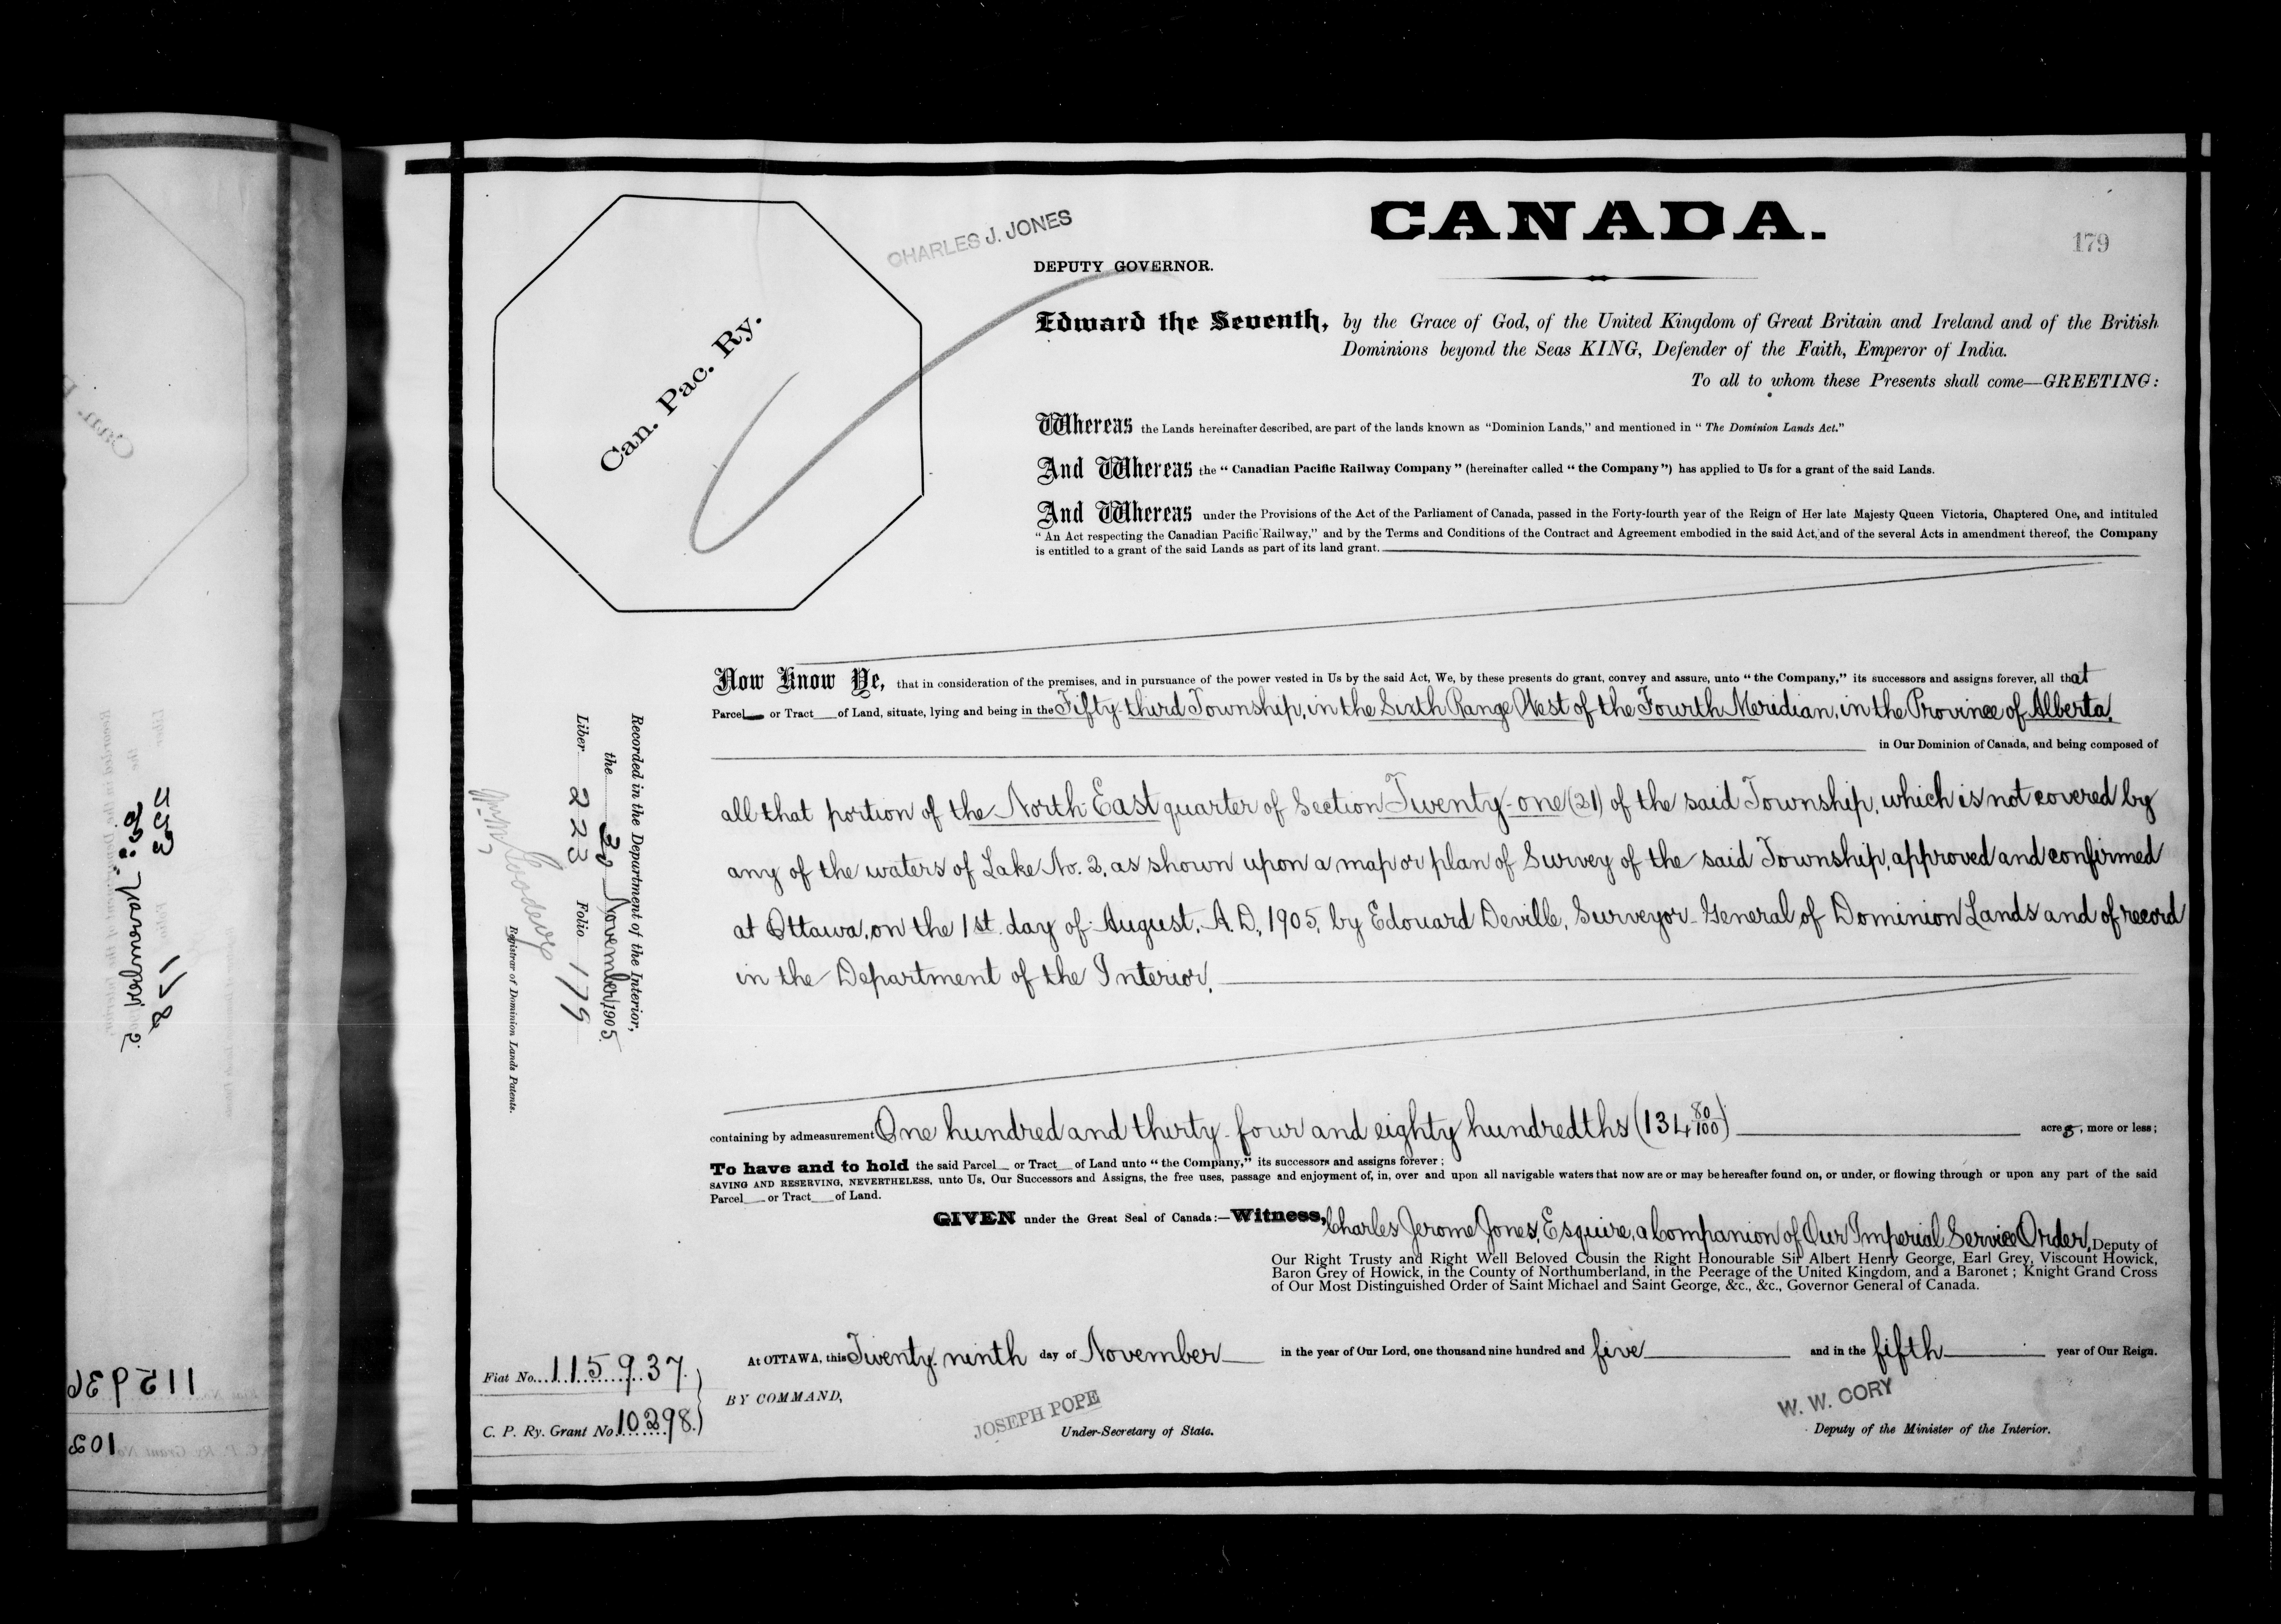 CANADA.
179
CHARLES J. JONES
DEPUTY GOVERNOR.
Can. Pac. Ry.
Edward the Seventh, by the Grace of God, of the United Kingdom of Great Britain and Ireland and of the British
Dominions beyond the Seas KING, Defender of the Faith, Emperor of India.
To all to whom these Presents shall come—GREETING:
Whereas the Lands hereinafter described, are part of the lands known as "Dominion Lands," and mentioned in "The Dominion Lands Act."
And Whereas the "Canadian Pacific Railway Company" (hereinafter called "the Company") has applied to Us for a grant of the said Lands.
And Whereas under the Provisions of the Act of the Parliament of Canada, passed in the Forty-fourth year of the Reign of Her late Majesty Queen Victoria, Chaptered One, and intituled
"An Act respecting the Canadian Pacific Railway," and by the Terms and Conditions of the Contract and Agreement embodied in the said Act, and of the several Acts in amendment thereof, the Company
is entitled to a grant of the said Lands as part of its land grant.
Now Know Ye, that in consideration of the premises, and in pursuance of the power vested in Us by the said Act, We, by these presents do grant, convey and assure, unto "the Company," its successors and assigns forever, all that
Parcel or Tract of Land, situate, lying and being in the Fifty-third Township, in the Sixth Range West of the Fourth Meridian, in the Province of Alberta,
in Our Dominion of Canada, and being composed of
all that portion of the North East quarter of Section Twenty-one (21) of the said Township, which is not covered by
any of the waters of Lake No. 2, as shown upon a map or plan of Survey of the said Township, approved and confirmed
at Ottawa, on the 1st. day of August, A.D., 1905, by Edouard Deville, Surveyor-General of Dominion Lands and of record
in the Department of the Interior,
containing by admeasurement One hundred and thirty-four and eighty hundredths (134 80/100) acres, more or less;
To have and to hold the said Parcel or Tract of Land unto "the Company," its successors and assigns forever;
SAVING AND RESERVING, NEVERTHELESS, unto Us, Our Successors and Assigns, the free uses, passage and enjoyment of, in, over and upon all navigable waters that now are or may be hereafter found on, or under, or flowing through or upon any part of the said
Parcel or Tract of Land.
GIVEN under the Great Seal of Canada:—Witness, Charles Jerome Jones, Esquire, a Companion of Our Imperial Service Order, Deputy of
Our Right Trusty and Right Well Beloved Cousin the Right Honourable Sir Albert Henry George, Earl Grey, Viscount Howick,
Baron Grey of Howick, in the County of Northumberland, in the Peerage of the United Kingdom, and a Baronet; Knight Grand Cross
of Our Most Distinguished Order of Saint Michael and Saint George, &c., &c., Governor General of Canada.
At OTTAWA, this Twenty-ninth day of November in the year of Our Lord, one thousand nine hundred and five and in the fifth year of Our Reign.
BY COMMAND,
JOSEPH POPE
Under-Secretary of State.
W. W. CORY
Deputy of the Minister of the Interior.
Fiat No. 115937.
C. P. Ry. Grant No. 10298.
Recorded in the Department of the Interior,
the 30 November 1905.
Liber 223 Folio 179
Registrar of Dominion Lands Patents.